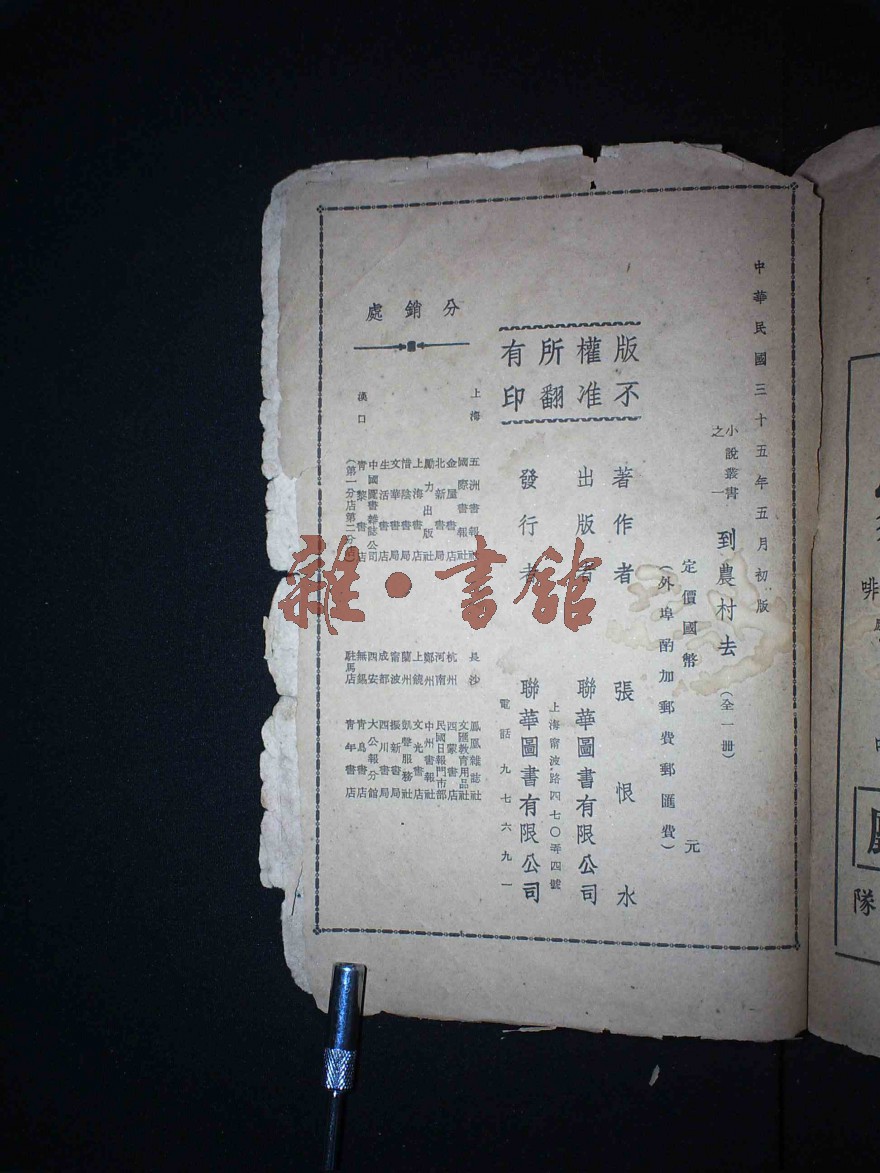 中華民國三十五年五月初版
小說叢書之一
到農村去(全一冊)
定價國幣 元
(外埠酌加郵費郵匯費)
版權所有
不准翻印
著作者 張恨水
出版者 聯華圖書有限公司
上海甯波路四七〇弄四號
發行者 聯華圖書有限公司
電話九七六九一
分銷處
上海
五洲書報社
國際書報社
金屋書店
北新書局
勵力出版社
上海書店
惜陰書局
文華書局
生活書店
中國圖書雜誌公司
漢口
青黎書店
(第一分店第二分店)
長沙 鳳鳳雜誌社
文匯教育用品社
杭州 西蒙書店
河南 民國日報門市部
鄭州 中州書報社
上饒 文光書店
蘭州 凱聲服務社
甯波 振新書局
成都 四川書局
西安 大公報分館
無錫 青鳥書店
駐馬店 青年書店
雜·書館
啡
隊